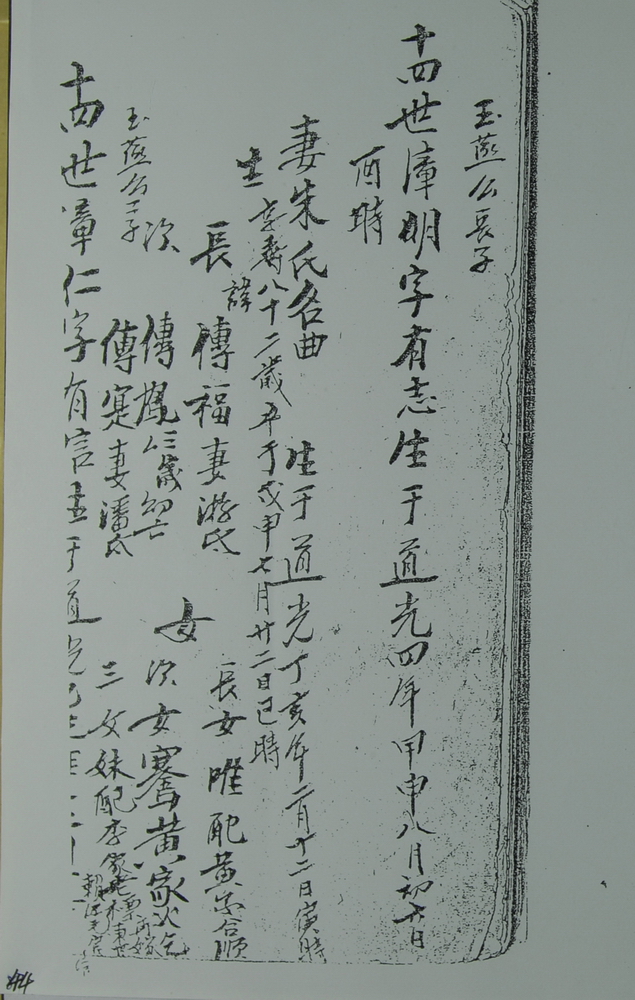 玉燕公長子
十四世漳明字有志生于道光四年甲申八月初六日
酉時
妻朱氏名曲 生于道光丁亥年二月十二日寅時
生 享壽八十二歲卒于戊申七月廿二日巳時
長 諱傳福妻游氏
女 長女唯配黃家合順
次 傳 亡三歲幼亡
次女騫黃家
傳寔妻潘氏
三女妹配李家
玉燕公二子
十四世漳仁字有言生于道光
44